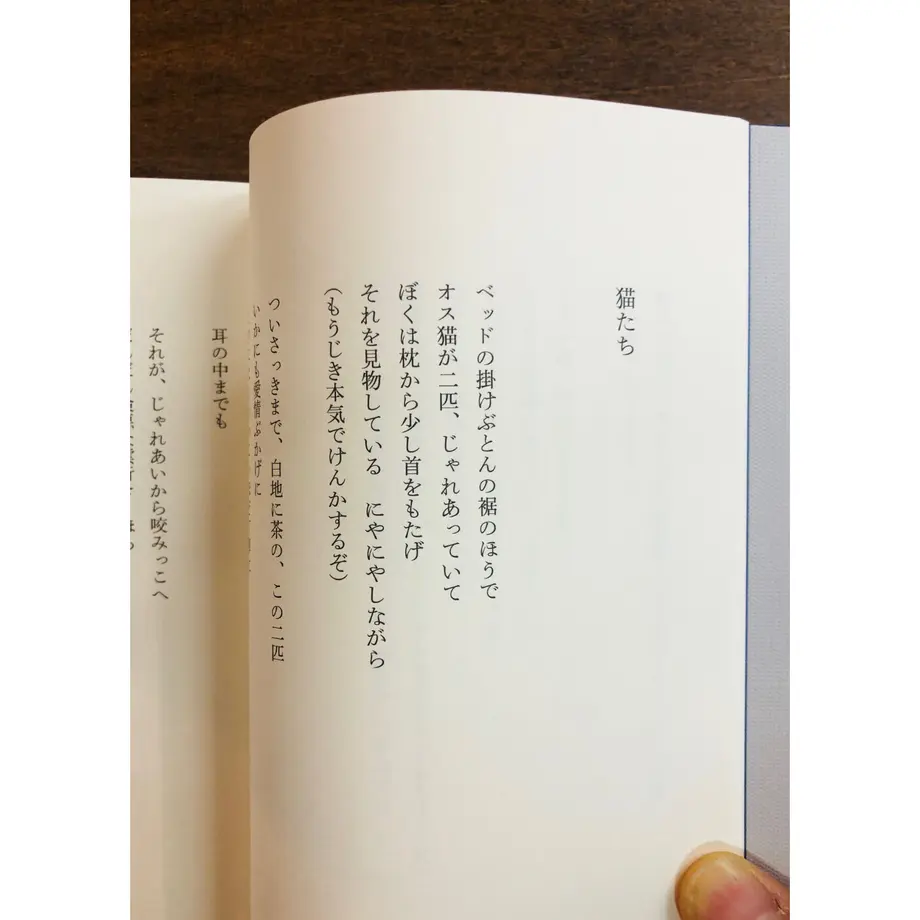 猫たち
ベッドの掛けぶとんの裾のほうで
オス猫が二匹、じゃれあっていて
ぼくは枕から少し首をもたげ
それを見物している　にやにやしながら
（もうじき本気でけんかするぞ）
ついさっきまで、白地に茶の、この二匹
いかにも愛情ぶかげに
耳の中までも
それが、じゃれあいから咬みっこへ